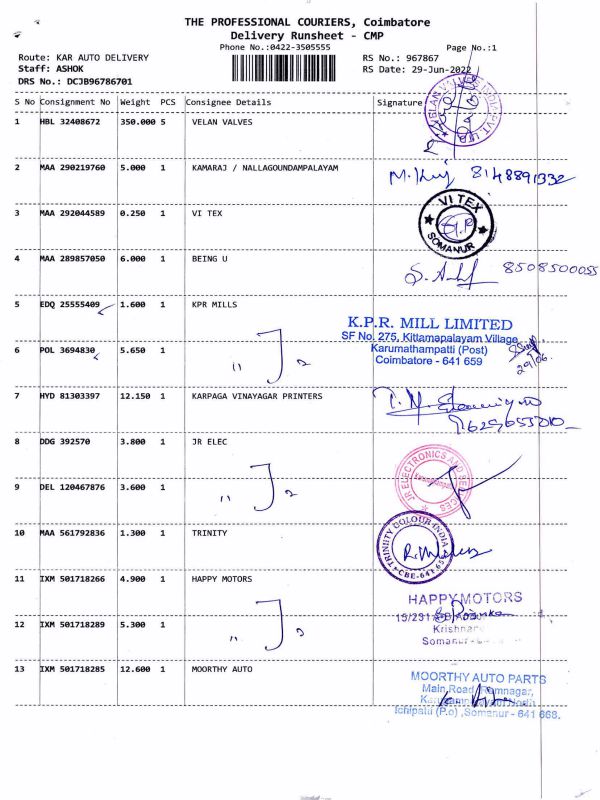 THE PROFESSIONAL COURIERS, Coimbatore
Delivery Runsheet - CMP
Phone No.:0422-3505555
Page No.:1
Route: KAR AUTO DELIVERY
RS No.: 967867
Staff: ASHOK
RS Date: 29-Jun-2022
DRS No.: DCJB96786701
S No Consignment No Weight PCS Consignee Details Signature
VELAN VALVES INDIA PVT. LTD
1 HBL 32408672 350.000 5 VELAN VALVES
2 MAA 290219760 5.000 1 KAMARAJ / NALLAGOUNDAMPALAYAM
8148891332
3 MAA 292044589 0.250 1 VI TEX
VI TEX
SOMANUR
4 MAA 289857050 6.000 1 BEING U
8508500055
5 EDQ 25555409 1.600 1 KPR MILLS
K.P.R. MILL LIMITED
SF No. 275, Kittamapalayam Village
Karumathampatti (Post)
Coimbatore - 641 659
29/06
6 POL 3694830 5.650 1
7 HYD 81303397 12.150 1 KARPAGA VINAYAGAR PRINTERS
9629653010
8 DDG 392570 3.800 1 JR ELEC
JR ELECTRONICS AND SERVICES
9 DEL 120467876 3.600 1
10 MAA 561792836 1.300 1 TRINITY
TRINITY COLOUR INDIA
11 IXM 501718266 4.900 1 HAPPY MOTORS
HAPPY MOTORS
12 IXM 501718289 5.300 1
13 IXM 501718285 12.600 1 MOORTHY AUTO
MOORTHY AUTO PARTS
Main Road, Ramnagar,
Ichipatti (P.o) ,Somanur - 641 668.